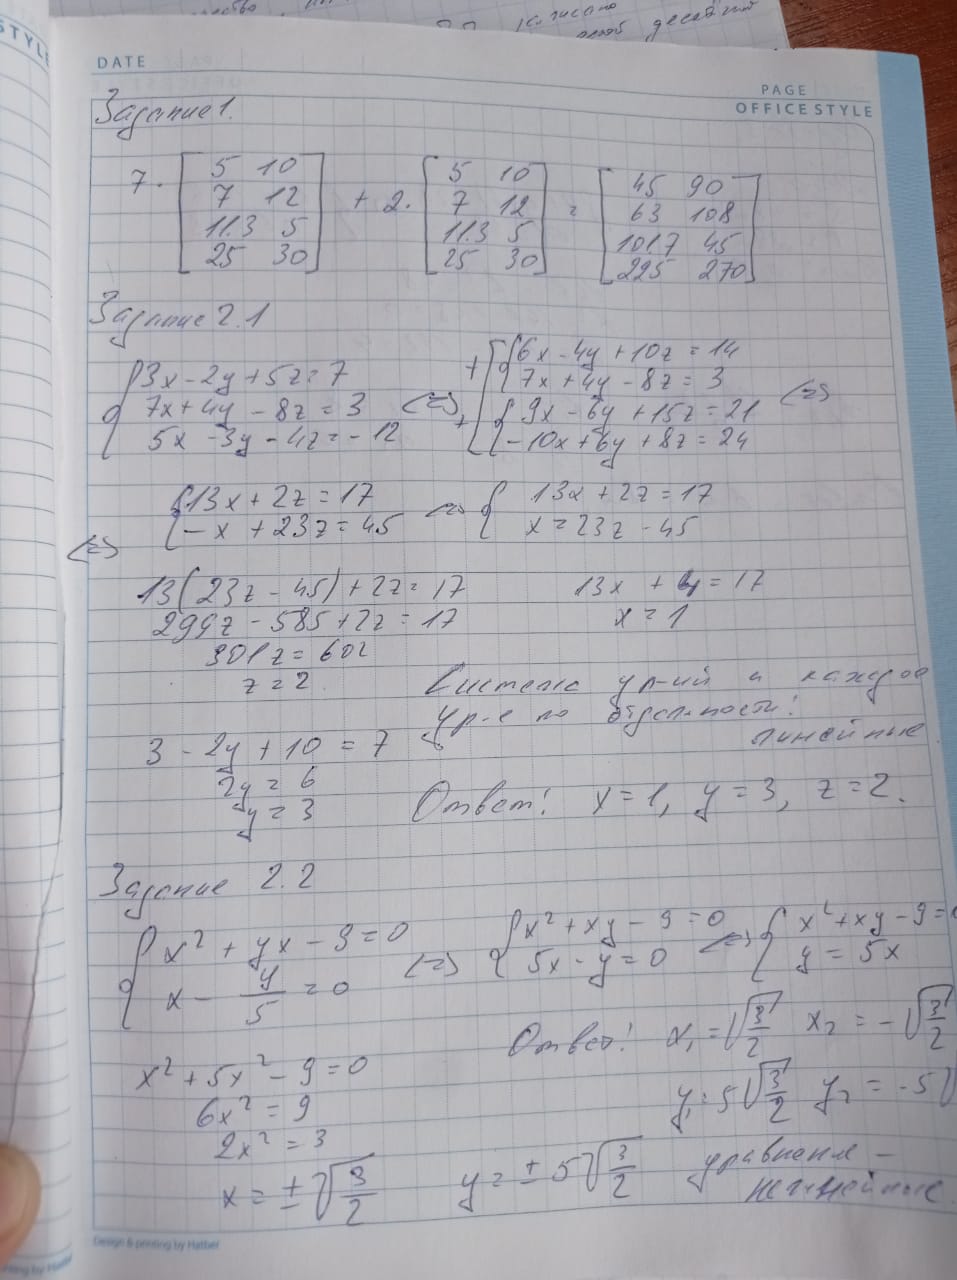 STYLE
DATE
PAGE
OFFICE STYLE
Задание 1.
7 · [5 10; 7 12; 11.3 5; 25 30] + 2 · [5 10; 7 12; 11.3 5; 25 30] = [45 90; 63 108; 101.7 45; 225 270]
Задание 2.1
{3x - 2y + 5z = 7
7x + 4y - 8z = 3
5x - 3y - 4z = -12 <=>
+ [{6x - 4y + 10z = 14
7x + 4y - 8z = 3
+ {9x - 6y + 15z = 21
-10x + 6y + 8z = 24 <=>
<=> {13x + 2z = 17
-x + 23z = 45
<=> {13x + 2z = 17
x = 23z - 45
13(23z - 45) + 2z = 17
299z - 585 + 2z = 17
301z = 602
z = 2
13x + 4 = 17
x = 1
Система ур-ий и каждое
ур-е по отдельности:
линейные
3 - 2y + 10 = 7
2y = 6
y = 3
Ответ: x = 1, y = 3, z = 2.
Задание 2.2
{x² + yx - 9 = 0
x - y/5 = 0
<=> {x² + xy - 9 = 0
5x - y = 0
<=> {x² + xy - 9 =
y = 5x
x² + 5x² - 9 = 0
6x² = 9
2x² = 3
x = ±√3/2
y = ±5√3/2
Ответ: x₁ = √3/2 x₂ = -√3/2
y₁ = 5√3/2 y₂ = -5√
уравнения -
нелинейные
Design & printing by Hatber